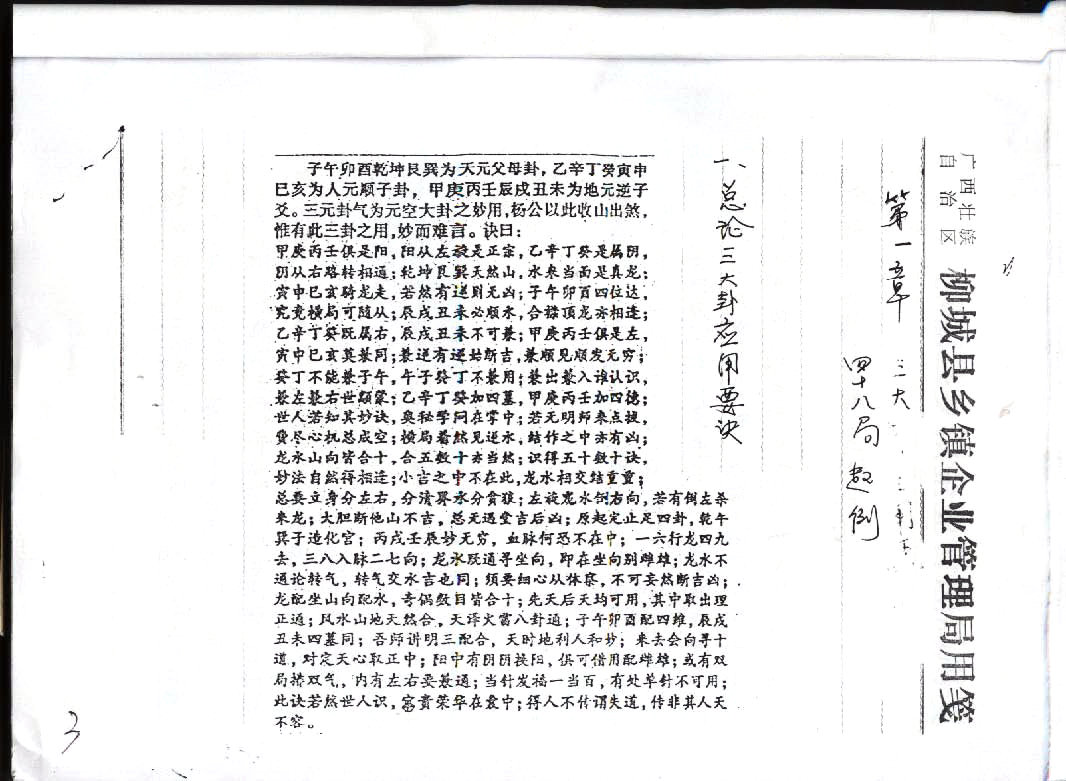 广西壮族
自治区
柳城县乡镇企业管理局用笺
第一章 三大
四十八局起例
一、总论三大卦应用要诀
子午卯酉乾坤艮巽为天元父母卦，乙辛丁癸寅申
巳亥为人元顺子卦，甲庚丙壬辰戌丑未为地元逆子
爻。三元卦气为元空大卦之妙用，杨公以此收山出煞，
惟有此三卦之用，妙而难言。诀曰：
甲庚丙壬俱是阳，阳从左旋是正宗，乙辛丁癸是属阴，
阴从右路转相通；乾坤艮巽天然山，水来当面是真龙；
寅申巳亥骑龙走，若然有逆则无凶；子午卯酉四位达，
究竟横局可随从；辰戌丑未必顺水，合禄顶龙亦相逢；
乙辛丁癸既属右，辰戌丑未不可兼；甲庚丙壬俱是左，
寅申巳亥莫兼同；兼逆有逆始断吉，兼顺见顺发无穷；
癸丁不能兼子午，午子癸丁不兼用；兼出兼入谁认识，
兼左兼右世颇蒙；乙辛丁癸加四墓，甲庚丙壬加四德；
世人若知其妙诀，奥秘学问在掌中；若无明师来点提，
费尽心机总成空；横局着然见逆水，结作之中亦有凶；
龙水山向皆合十，合五数十亦当然；识得五十数十诀，
妙法自然得相连；小吉之中不在此，龙水相交结重重；
总要立身分左右，分清算水分贪狼；左旋龙水倒右向，若有倒左杀
来龙；大胆断他山不吉，总无过堂吉后凶；原起定止足四卦，乾午
巽子造化宫；丙戌壬辰妙无穷，血脉何恐不在中；一六行龙四九
去，三八入脉二七向；龙水既通寻坐向，即在坐向别雌雄；龙水不
通论转气，转气交水吉也同；须要细心从体察，不可妄然断吉凶；
龙配坐山向配水，奇偶数目皆合十；先天后天均可用，其中取出理
正通；风水山地天然合，天泽火雷八卦通；子午卯酉配四维，辰戌
丑未四墓同；吾师讲明三配合，天时地利人和妙；来去会向寻十
道，对定天心取正中；阳中有阴阴挨阳，俱可借用配雌雄；或有双
局挤双气，内有左右要兼通；当针发福一当百，有处单针不可用；
此诀若然世人识，富贵荣华在袁中；得人不传谓失道，传非其人天
不容。
3